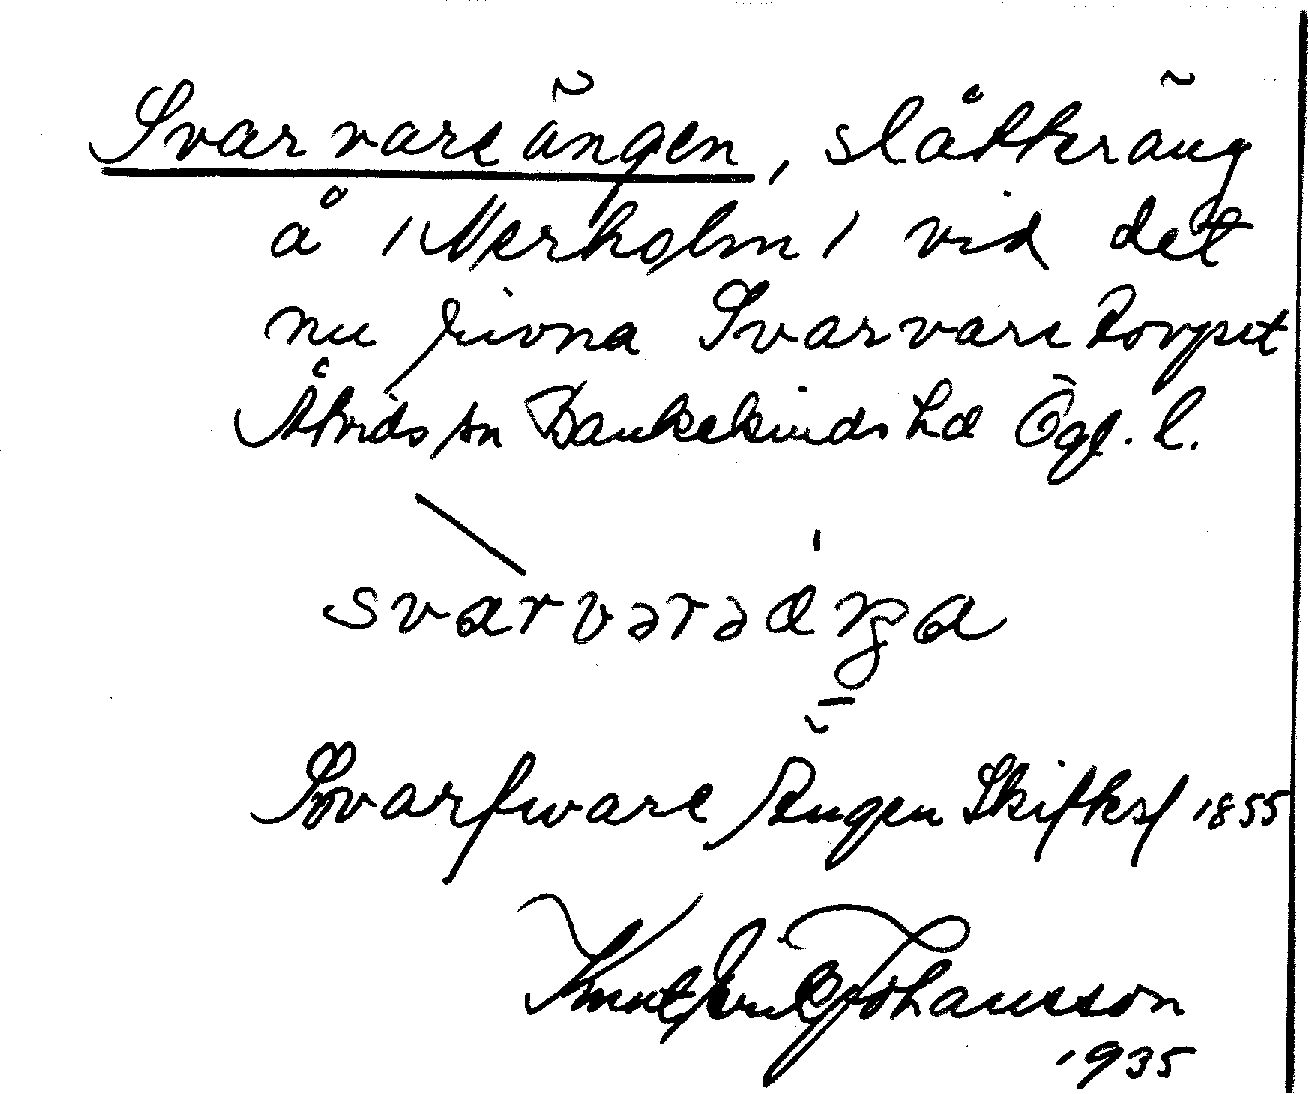 Svarvareängen, slåtteräng
å /Nerholm/ vid det
nu rivna Svarvaretorpet
Åtvids sn Bankekinds hd Ögl. l.
svarvarəäŋa
Svarfware Ängen Skiftesh 1855
Knut Erik Johansson
1935